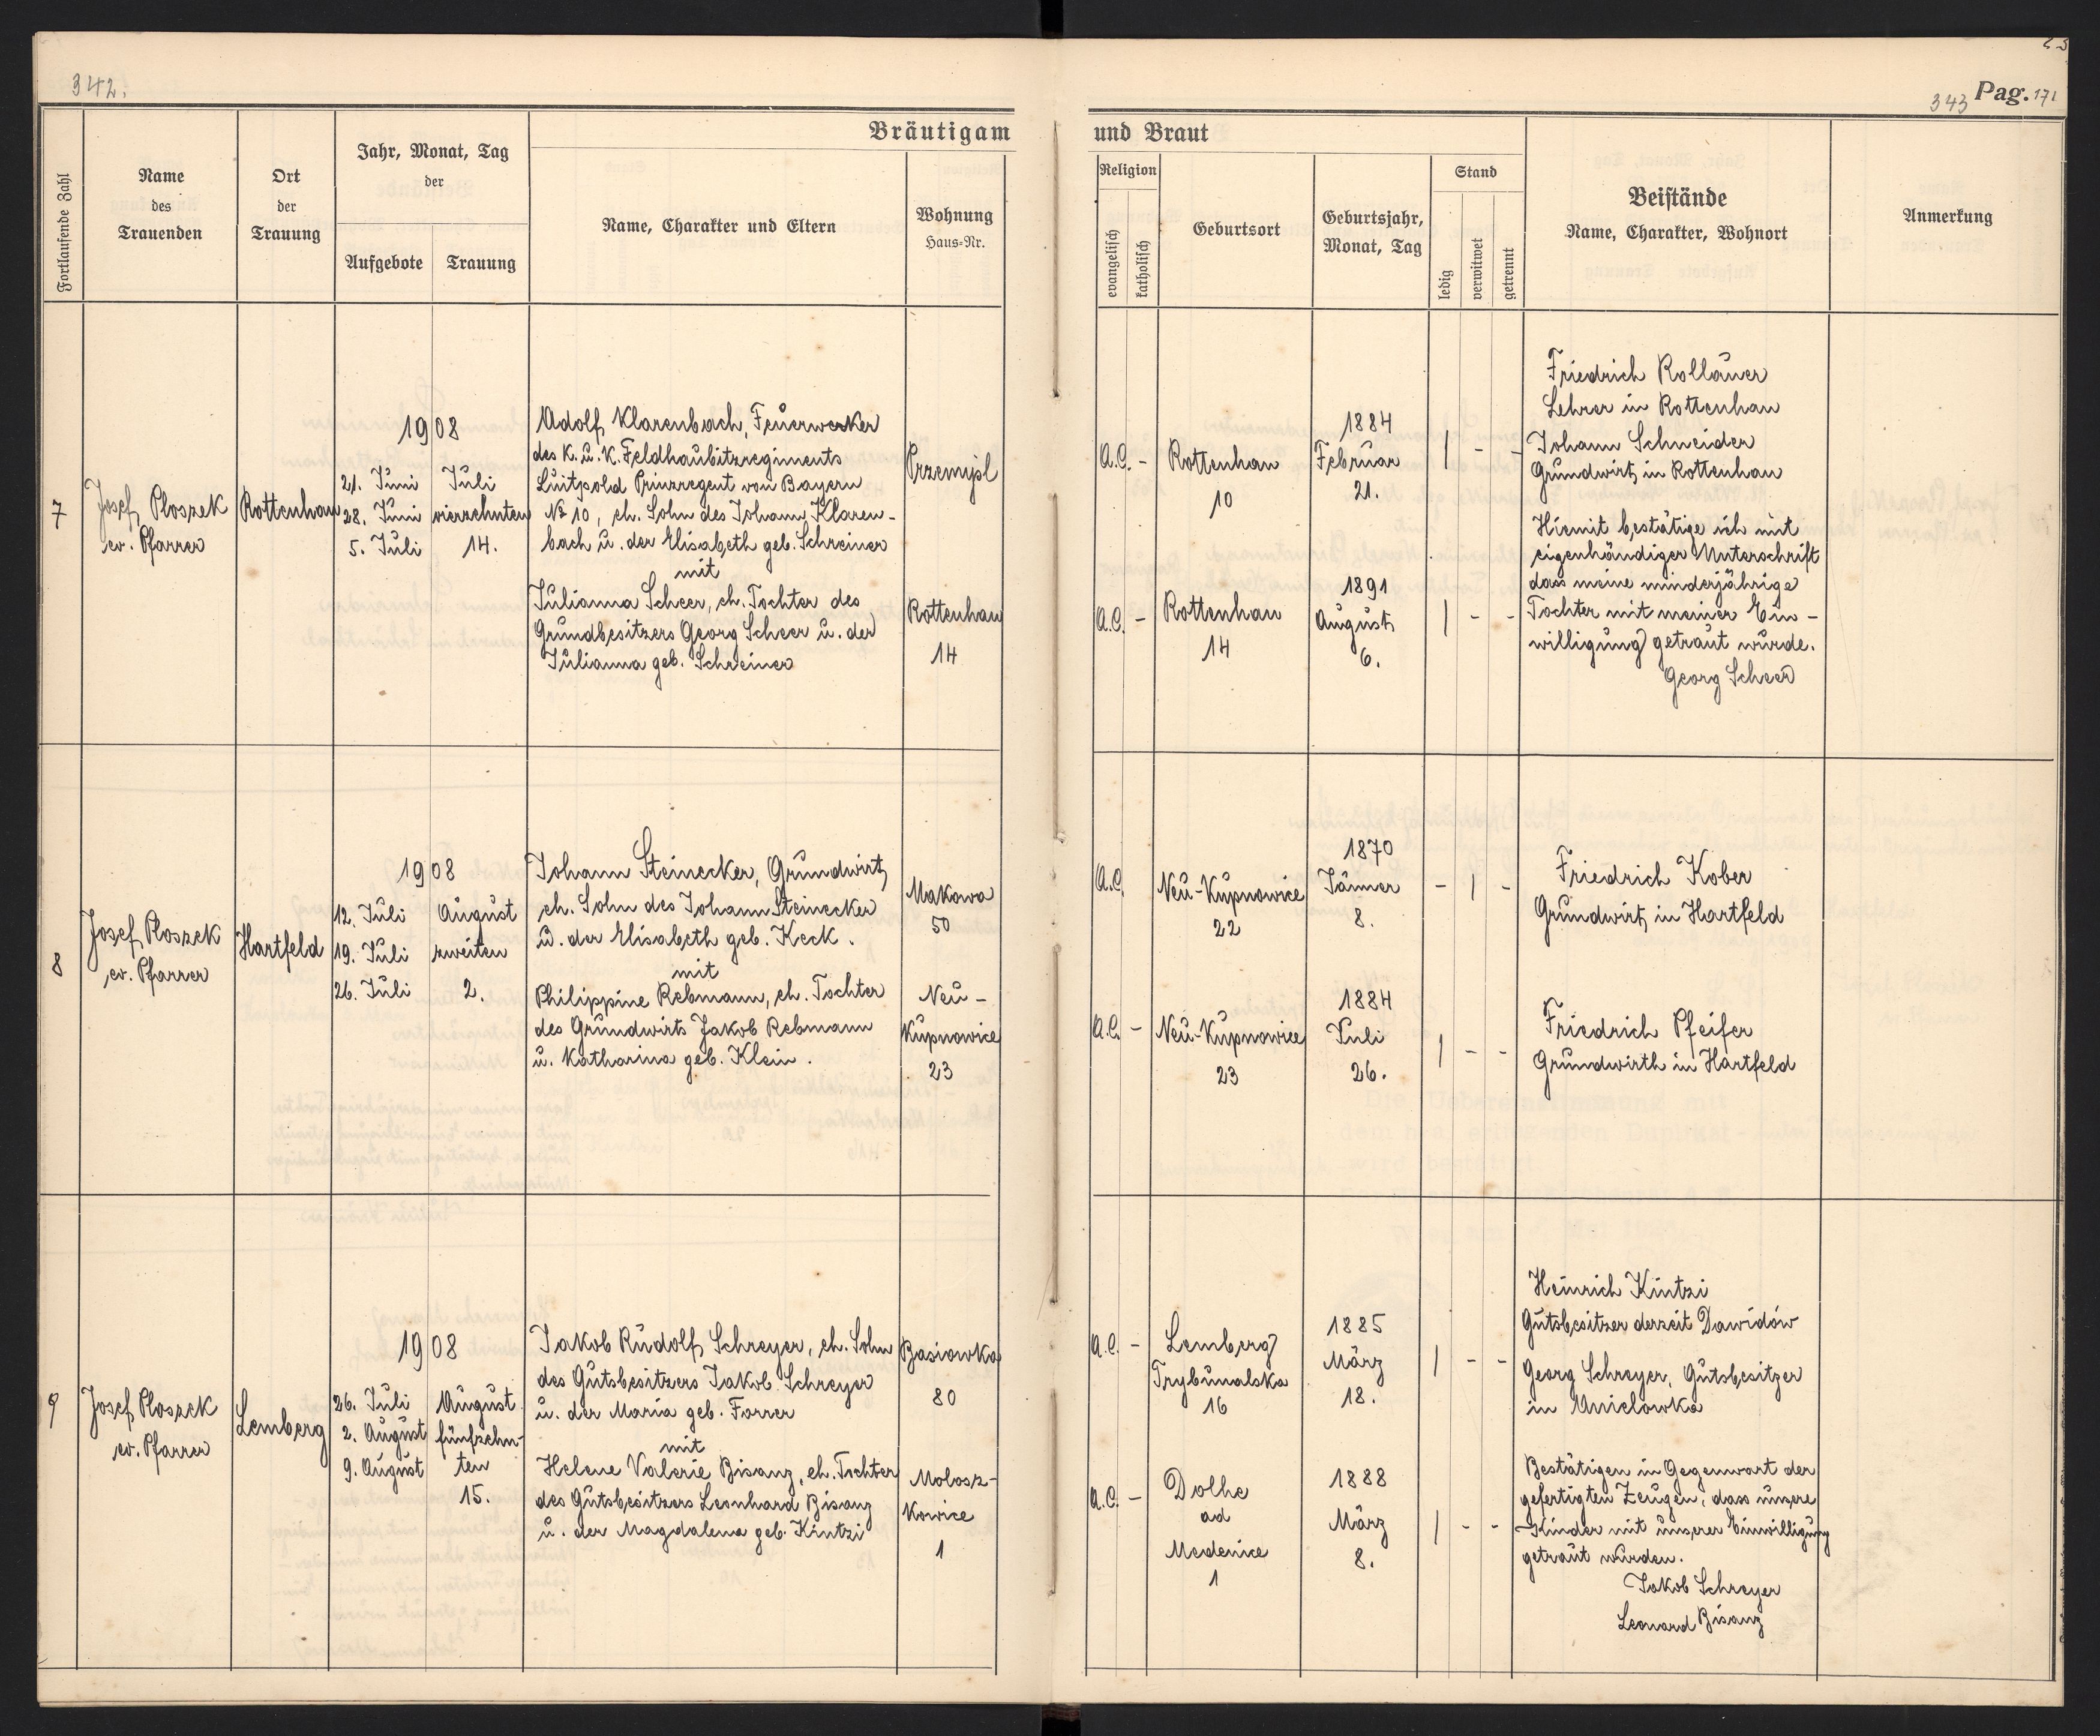 342.
343 Pag. 171
Bräutigam und Braut
Fortlaufende Zahl
Name
des
Trauenden
Ort
der
Trauung
Jahr, Monat, Tag
der
Aufgebote
Trauung
Name, Charakter und Eltern
Wohnung
Haus=Nr.
Religion
evangelisch
katholisch
Geburtsort
Geburtsjahr,
Monat, Tag
Stand
ledig
verwitwet
getrennt
Beistände
Name, Charakter, Wohnort
Anmerkung
7
Josef Ploszek
ev. Pfarrer
Rottenhan
1908
21. Juni
28. Juni
5. Juli
Juli
vierzehnten
14.
Adolf Klarenbach, Feuerwerker
des K. u. K. Feldhaubitzregiments
Luitpold Prinzregent von Bayern
№ 10, eh. Sohn des Johann Klaren-
bach u. der Elisabeth geb. Schreiner
mit
Julianna Scheer, eh. Tochter des
Grundbesitzers Georg Scheer u. der
Julianna geb. Schreiner
Przemyśl
Rottenhan
14
A.C. -
Rottenhan
10
1884
Februar
21.
| - -
A.C. -
Rottenhan
14
1891
August
6.
| - -
Friedrich Rollauer
Lehrer in Rottenhan
Johann Schneider
Grundwirt in Rottenhan
Hiemit bestätige ich mit
eigenhändiger Unterschrift
dass meine minderjährige
Tochter mit meiner Ein-
willigung getraut wurde.
Georg Scheer
8
Josef Ploszek
ev. Pfarrer
Hartfeld
1908
12. Juli
19. Juli
26. Juli
August
zweiten
2.
Johann Steinecker, Grundwirt,
eh. Sohn des Johann Steinecker
u. der Elisabeth geb. Keck.
mit
Philippine Rebmann, eh. Tochter
des Grundwirts Jakob Rebmann
u. Katharina geb. Klein.
Makowa
50
Neu-
Kupnowice
23
A.C.
Neu-Kupnowice
22
1870
Jänner
8.
- | -
A.C. -
Neu-Kupnowice
23
1884
Juli
26.
| - -
Friedrich Kober
Grundwirt in Hartfeld
Friedrich Pfeifer
Grundwirth in Hartfeld
9
Josef Ploszek
ev. Pfarrer
Lemberg
1908
26. Juli
2. August
9. August
August
fünfzehn-
ten
15.
Jakob Rudolf Schreyer, eh. Sohn
des Gutsbesitzers Jakob Schreyer
u. der Maria geb. Forrer
mit
Helene Valerie Bisanz, eh. Tochter
des Gutsbesitzers Leonhard Bisanz
u. der Magdalena geb. Kintzi
Basiowka
80
Molosz-
kowice
1
A.C. -
Lemberg
Trybunalska
16
1885
März
18.
| - -
A.C. -
Dolhe
ad
Medenice
1
1888
März
8.
| - -
Heinrich Kintzi
Gutsbesitzer derzeit Dawidów
Georg Schreyer, Gutsbesitzer
in Anielowka
Bestätigen in Gegenwart der
gefertigten Zeugen, dass unsere
Kinder mit unserer Einwilligung
getraut wurden.
Jakob Schreyer
Leonard Bisanz